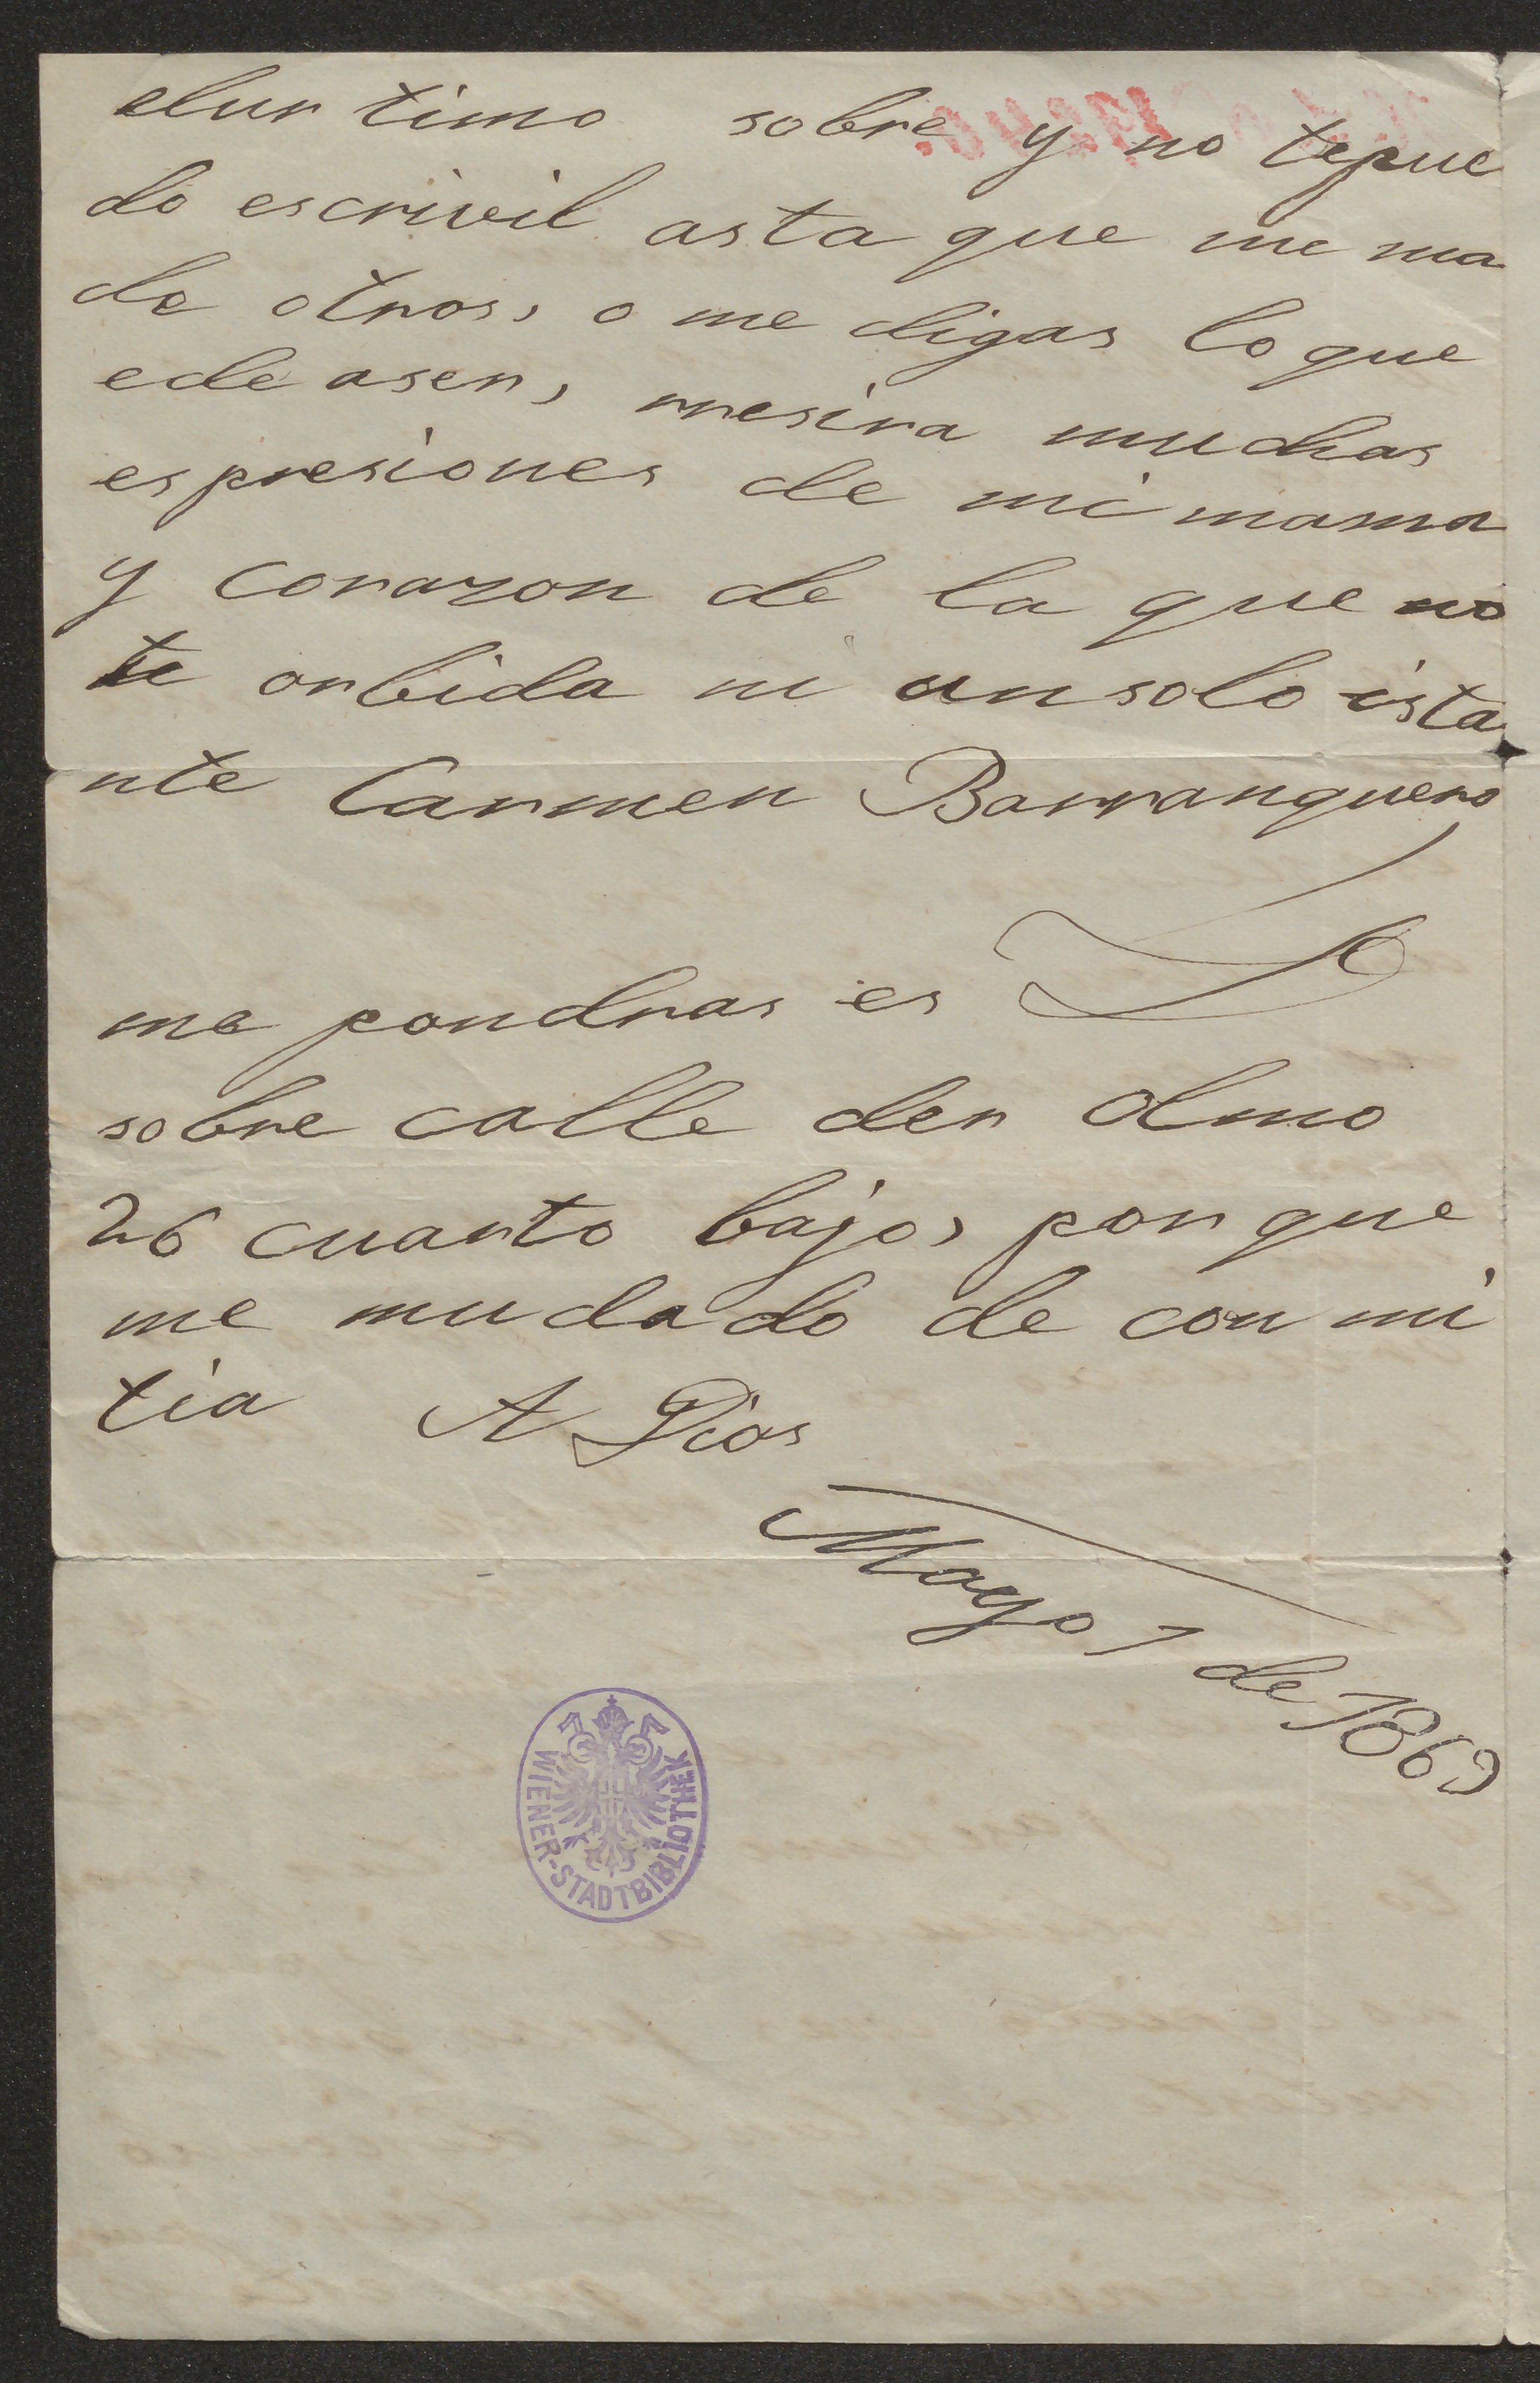 elur timo sobre y no tepue
do escrivil asta que me ma
de otros, o me digas lo que
ede aser, mesira muchas
espresiones de mi mama
y corazon de la que no
te orbida ni un solo ista
nte Carmen Barranquero
me pondras es
sobre calle der Olmo
26 cuarto bajo, por que
me mudado de con mi
tia A Dios
Mayo 7 de 1869
WIENER-STADTBIBLIOTHEK